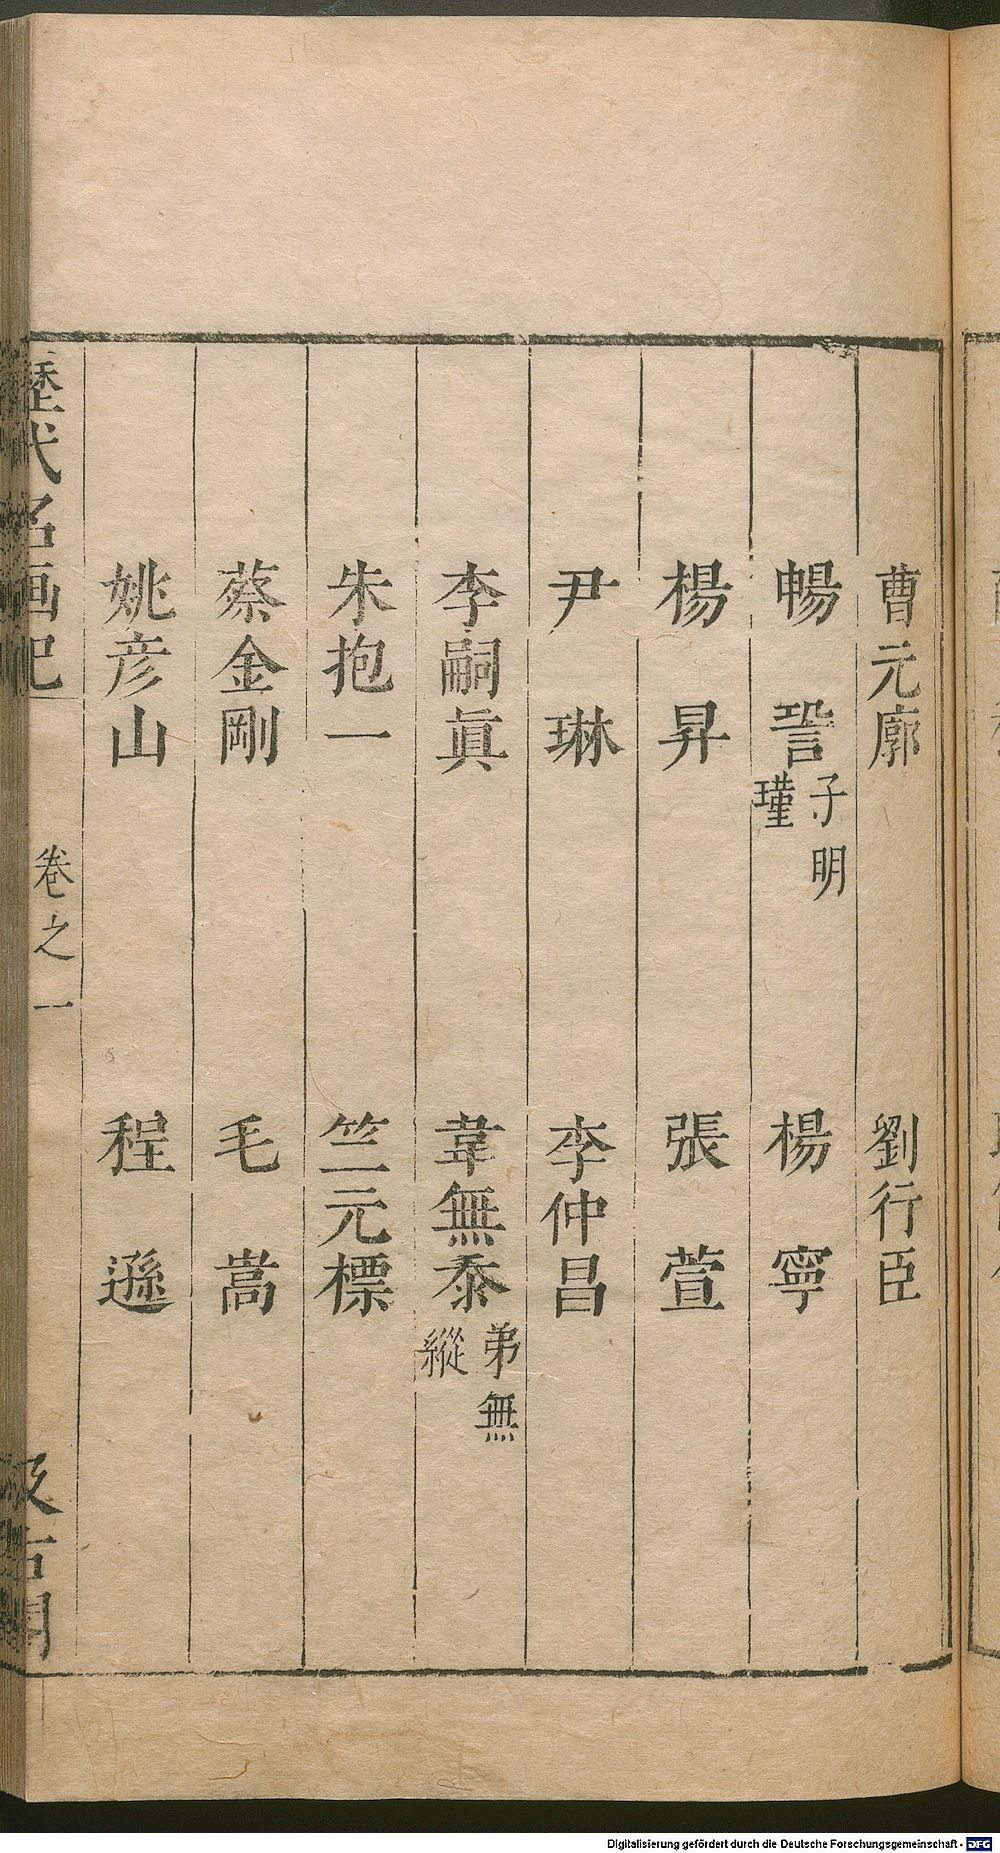 曹元廓 劉行臣
暢 䛗 子明瑾 楊 寧
楊 昇 張 萱
尹 琳 李仲昌
李嗣眞 韋無忝 弟無縱
朱抱一 竺元標
蔡金剛 毛 嵩
姚彦山 程 遜
歷代名画記 卷之一 汲古閣
Digitalisierung gefördert durch die Deutsche Forschungsgemeinschaft - DFG